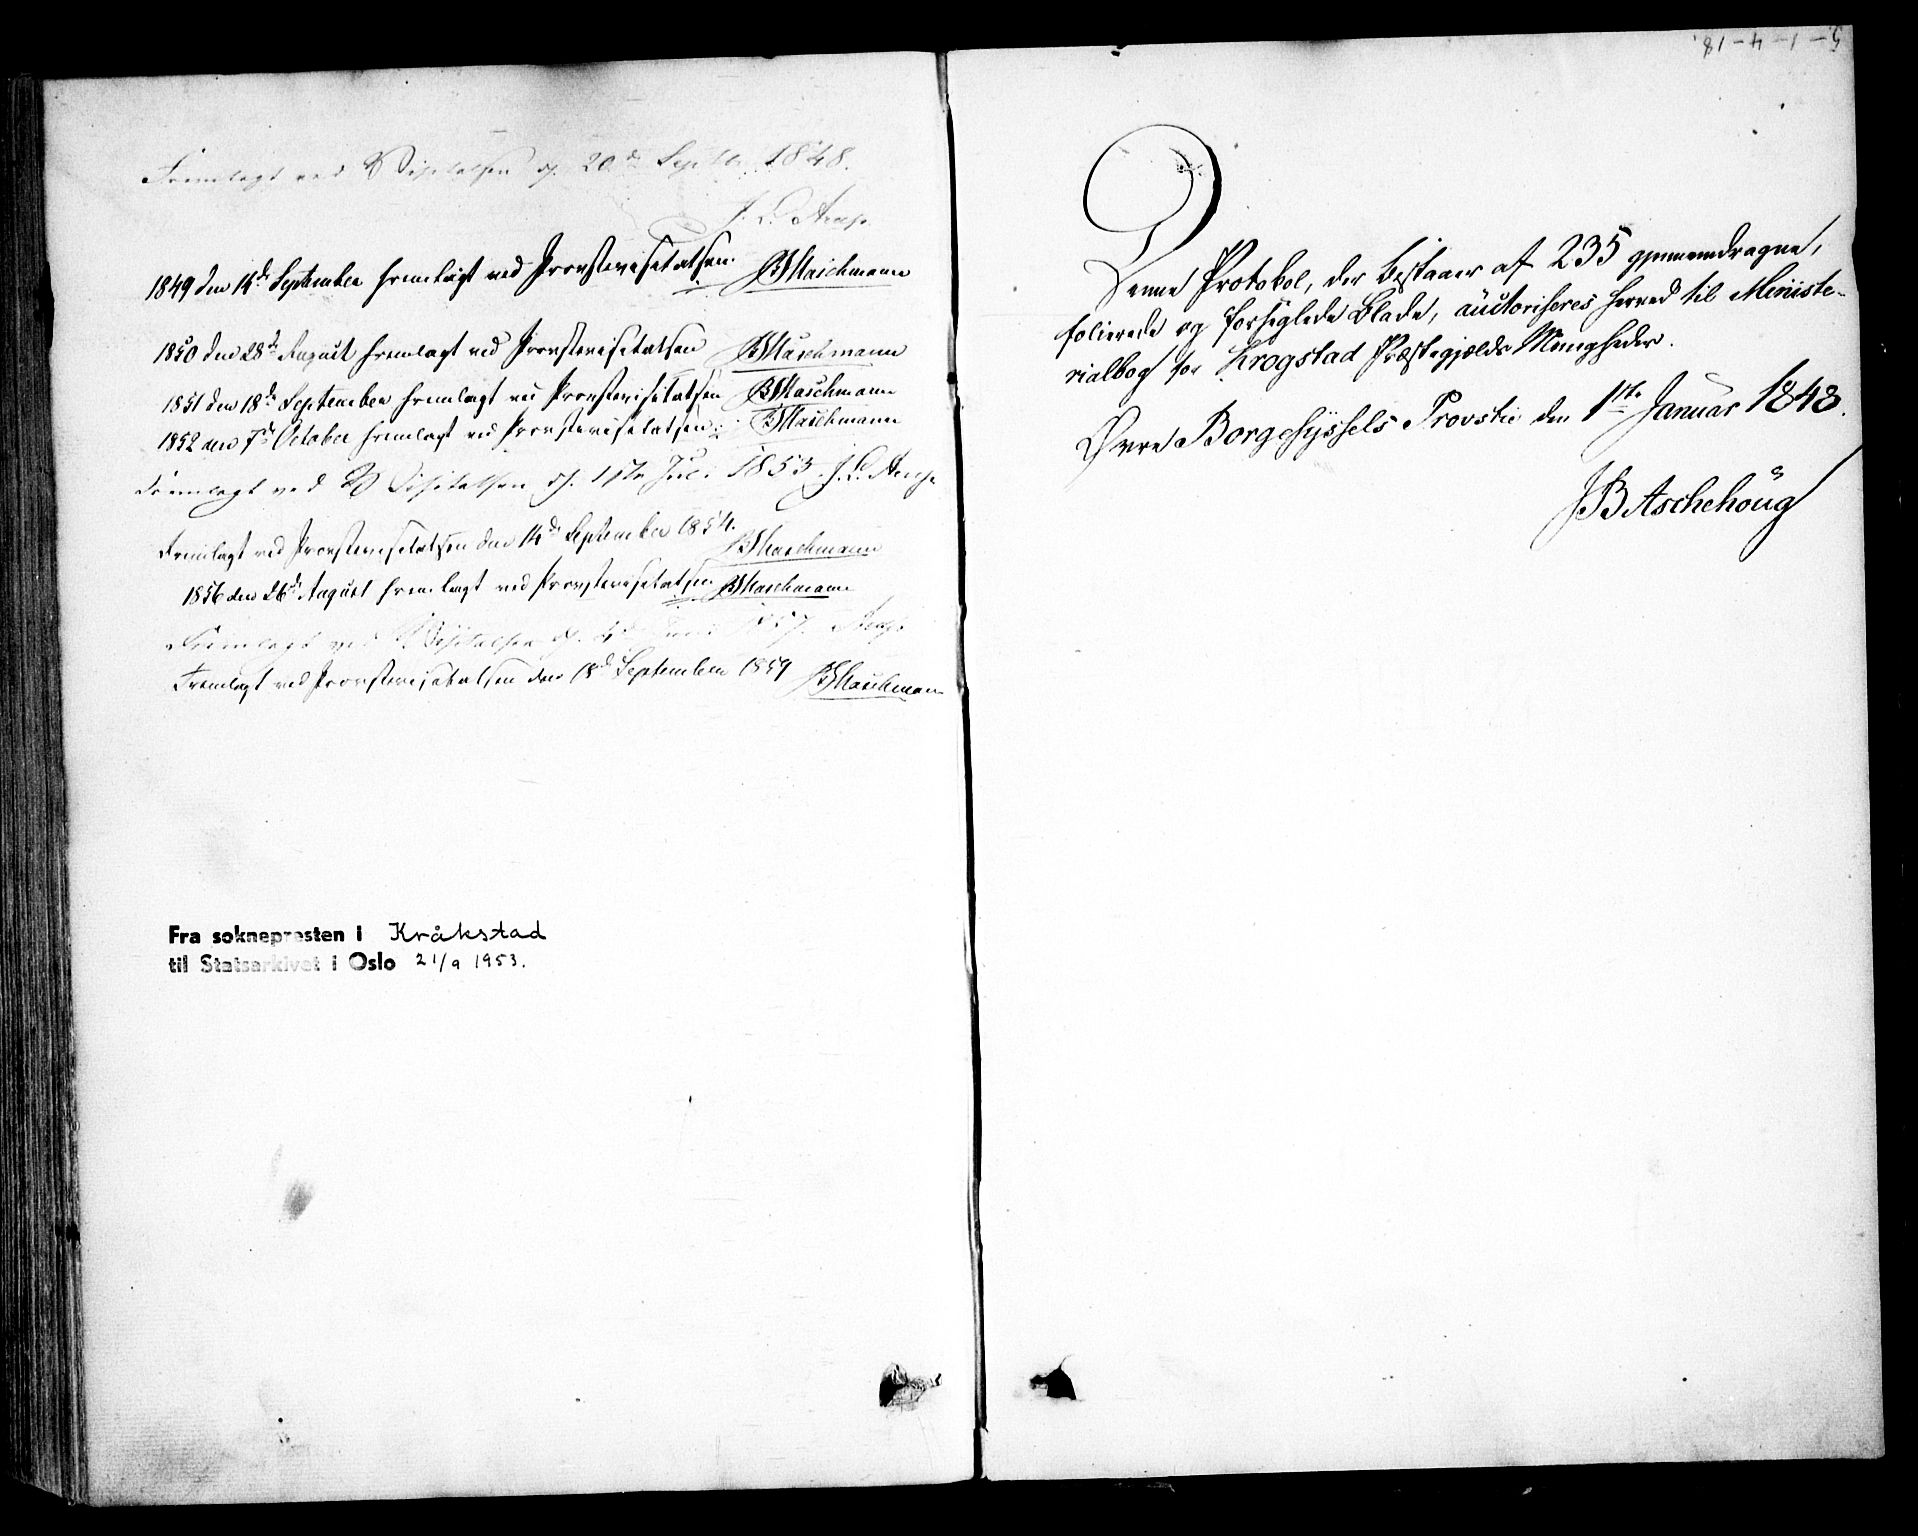 Fremlagt ved Visitatsen d. 20de Septbr. 1848.
J. L. Arup.
1849 den 14de September fremlagt ved Provstevisitatsen. BMaschmann
1850 den 28de August fremlagt ved Provstevisitatsen BMaschmann
1851 den 18de September fremlagt ved Provstevisitatsen BMaschmann
1852 den 7de October fremlagt ved Provstevisitatsen. BMaschmann
Fremlagt ved Visitatsen d. 1ste Juli 1853. J. L. Arup.
Fremlagt ved Provstevisitatsen den 14de September 1854. BMaschmann
1856 den 26de August fremlagt ved Provstevisitatsen BMaschmann
Fremlagt ved Visitatsen d. 1857. Arup.
Fremlagt ved Provstevisitatsen den 18de September 1859 BMaschmann
Fra sokneprosten i Kråkstad
til Statsarkivet i Oslo 21/9 1953.
5-1-4-18.
Denne Protokol, der bestaaer af 235 gjennemdragne,
folierede og forseglede Blade, auctoriseres herved til Ministe-
rialbog for Krogstad Præstegjælds Menigheder.
Øvre Borgesyssels Provstie den 1ste Januar 1848.
JBAschehoug